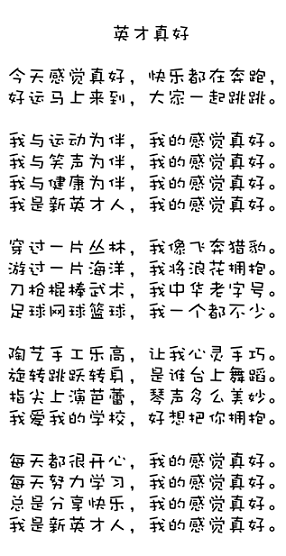 英才真好
今天感觉真好，快乐都在奔跑，
好运马上来到，大家一起跳跳。
我与运动为伴，我的感觉真好。
我与笑声为伴，我的感觉真好。
我与健康为伴，我的感觉真好。
我是新英才人，我的感觉真好。
穿过一片丛林，我像飞奔猎豹。
游过一片海洋，我将浪花拥抱。
刀枪棍棒武术，我中华老字号。
足球网球篮球，我一个都不少。
陶艺手工乐高，让我心灵手巧。
旋转跳跃转身，是谁台上舞蹈。
指尖上演芭蕾，琴声多么美妙。
我爱我的学校，好想把你拥抱。
每天都很开心，我的感觉真好。
每天努力学习，我的感觉真好。
总是分享快乐，我的感觉真好。
我是新英才人，我的感觉真好。